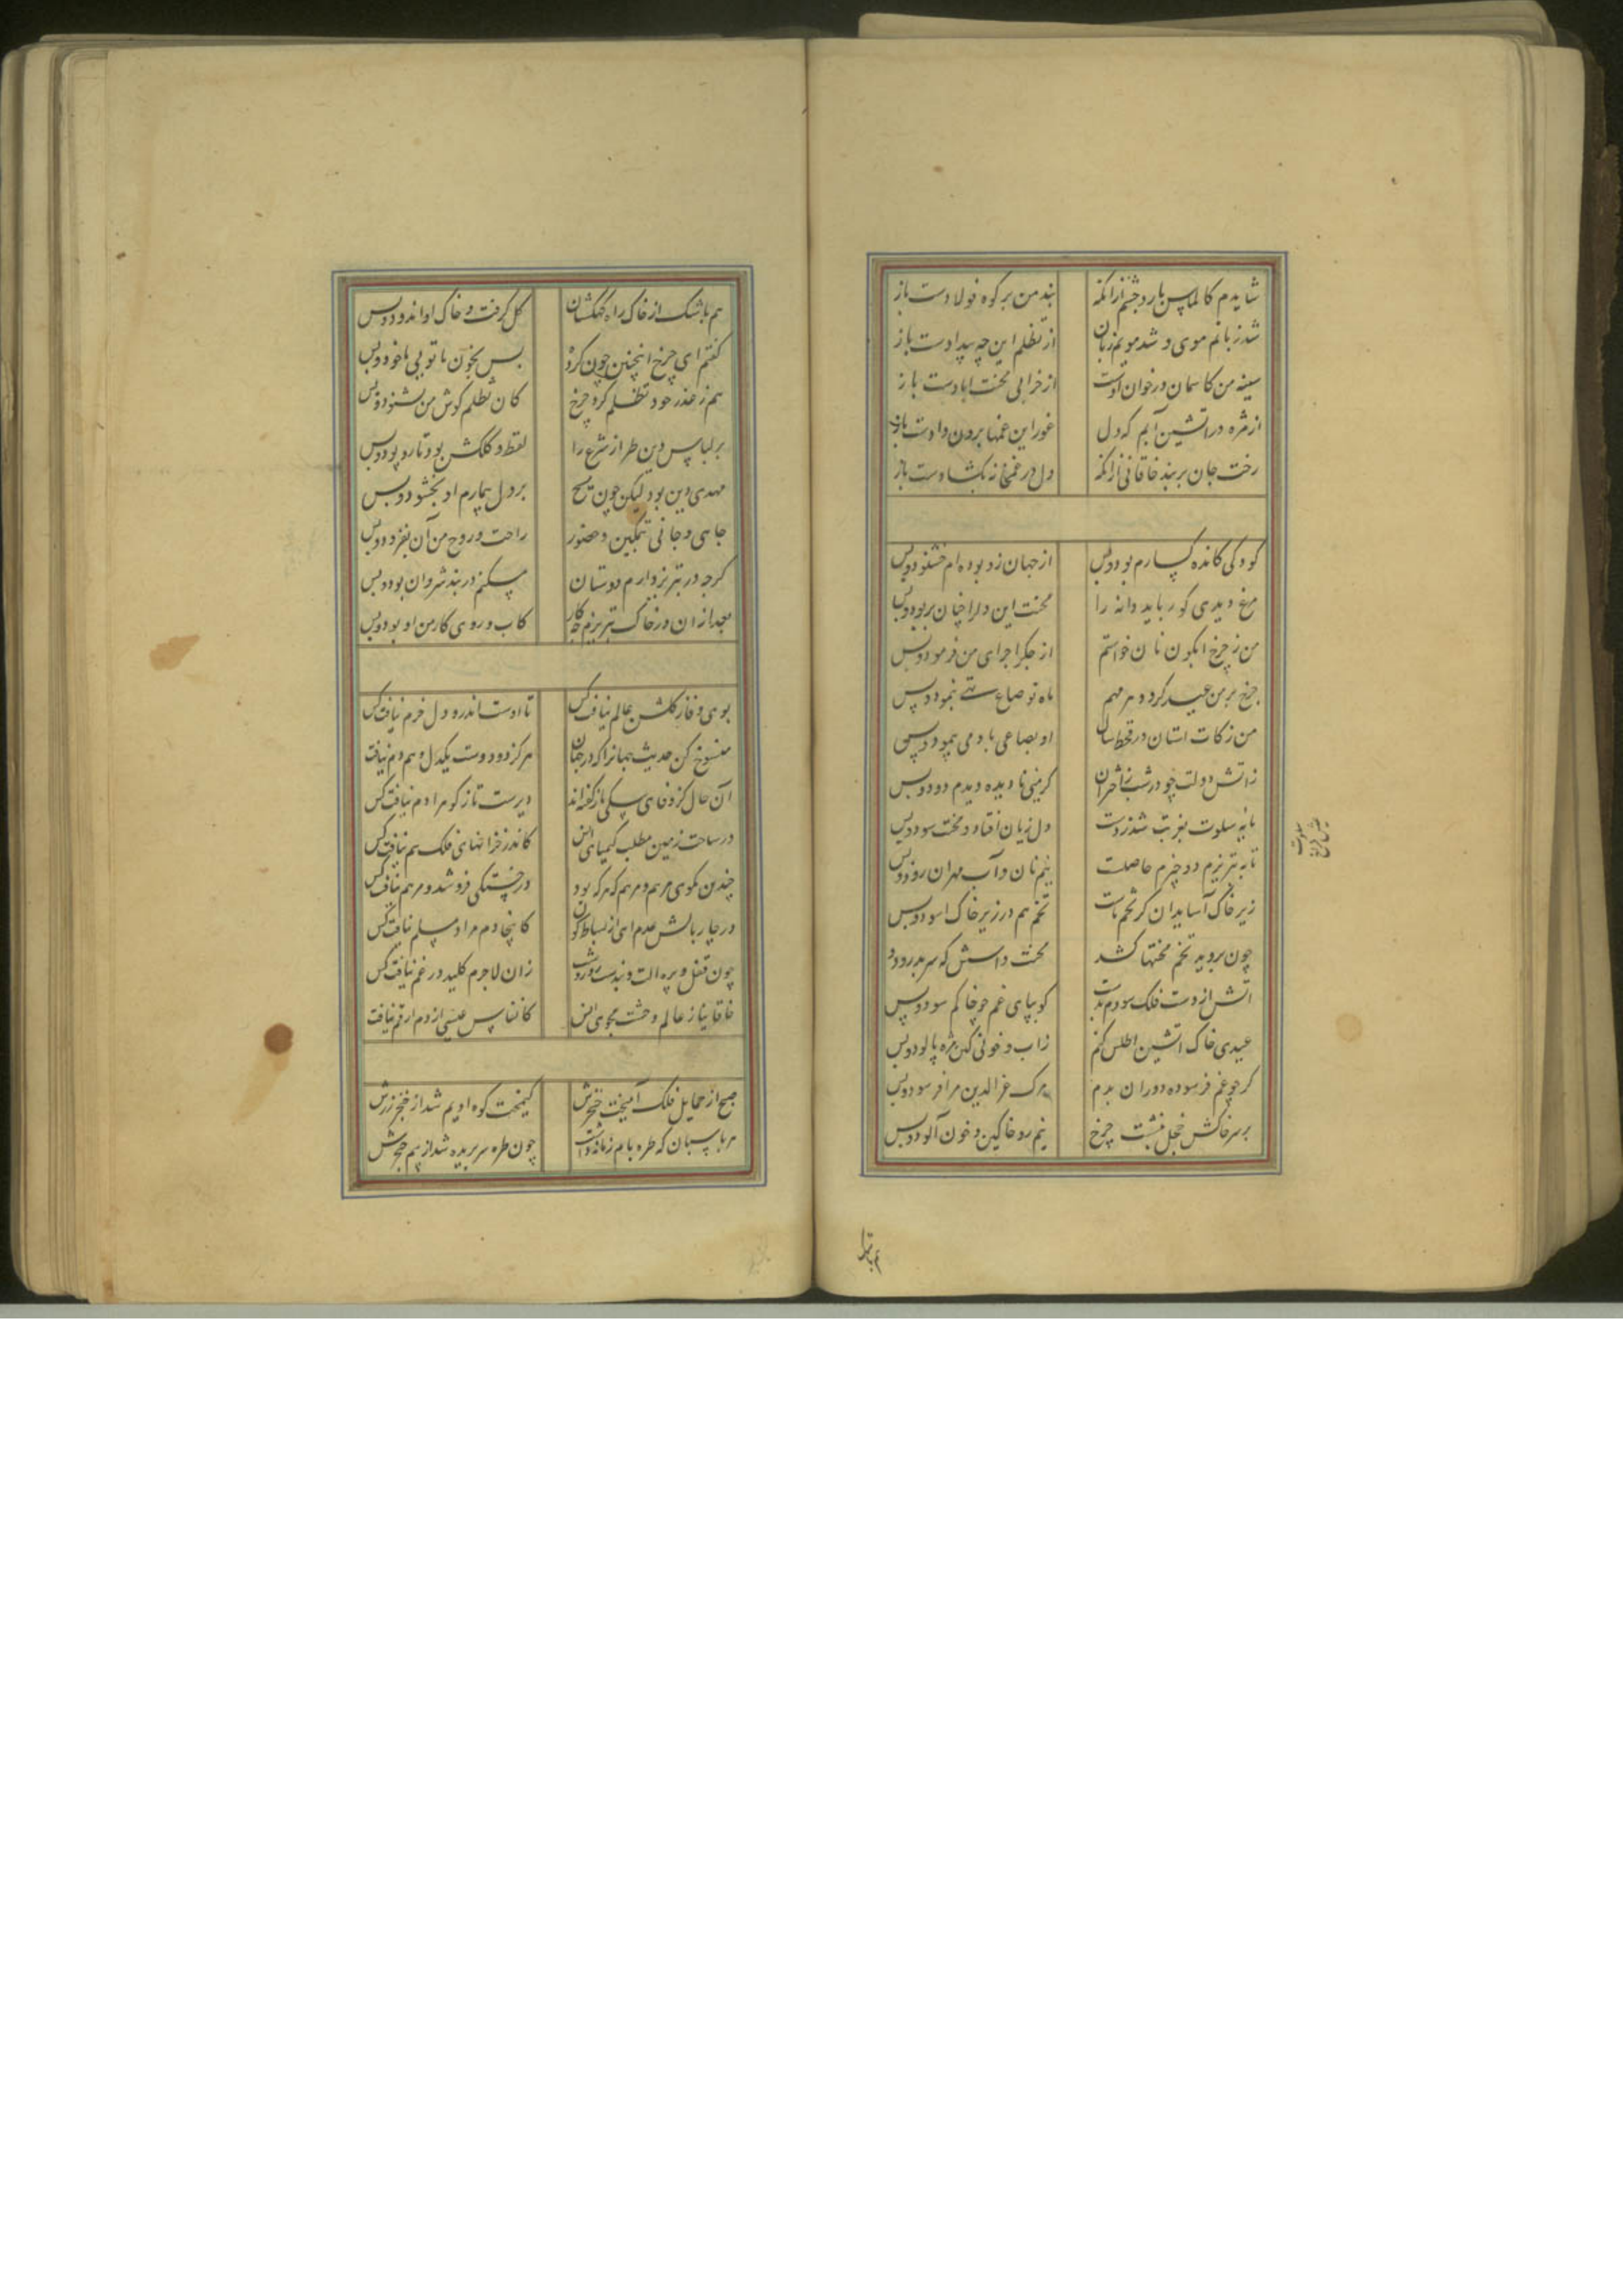 شایدم کالماس بارد چشم ازانکه بند من بر کوه فولادست باز
شد زبانم موی و شد مویم زبان از تظلم این چه بیدادست باز
سینه من کاسمان درخون اوست از خرابی محنت ابادست باز
از مژه در اتشین آبم که دل غور این غمها برون دادست باز
رخت جان بربند خاقانی ازانکه دل در غمخانه بکشادست باز
کودکی کانده کسارم بود و بس از جهان زو بوده ام خشنود و بس
مرغ دیدی کو رباید دانه را محنت این دل را چنان بربود و بس
من ز چرخ ابکون نان خواستم از جکر اجرای من فرمود و بس
چرخ بر من عید کرد و هر مهم ماه نو صاع تهی بنمود و بس
من زکات استان در قحط سال او بصاعی باد می پیمود و بس
زاتش دولت چو در شب ز اختران کرمیی نادیده دیدم دود و بس
مایه سلوت بغربت شد ز دست دل زیان افتاد و محنت سود و بس
تا به تبریزم دو چیزم حاصلست نیم نان و آب مهران رود و بس
زیر خاک آساید ان کز تخم ماست تخم هم در زیر خاک اسود و بس
چون بروید تخم محنتها کشد محنت داسش که سر بدرود و
اتش از دست فلک سودم بدست کو بپای غم چو خاکم سود و بس
عیدی خاک اتشین اطلس کنم زاب و خونی کین مژه پالود و بس
کرچه غم فرسوده دوران بدم مرک عزالدین مرا فرسود و بس
بر سر خاکش خجل بنشست چرخ نیم رو خاکین و خون آلود و بس
هم باشک
هم باشک از خاک راه کهکشان کل کرفت و خاک او اندود و بس
کفتم ای چرخ اینچنین چون کردۀ بس بخون ما تویی ماخوذ و بس
هم ز عذر خود تظلم کرد چرخ کان تظلم کوش من بشنود و بس
بر لباس دین طراز شرع را لفظ و کلکش بود تار و پود و بس
مهدی دین بود لیکن چون مسیح بر دل بیمارم او بخشود و بس
جاهی و جانی تمکین و حضور راحت و روح من آن بفزود و بس
کرچه در تبریز دارم دوستان مسکنم در بند شروان بود و بس
بعد ازان در خاک تبریزم چه کار کاب و روی کار من او بود و بس
بوی وفا ز کلشن عالم نیافت کس تا اوست اندرو دل خرم نیافت کس
منسوخ کن حدیث جهانرا که در جهان هرکز دو دوست یکدل و هم دم نیافت
آن حال کز وفای سکی باز کفته اند دیرست تا ز کوهر ادم نیافت کس
در ساحت زمین مطلب کیمیای انس کاندر خزانهای فلک هم نیافت کس
چندین مکوی مرهم و مرهم که هرکه بود در خستکی فرو شد و مرهم نیافت کس
در چاربالش عدم ای از بساط کون کاینجا دم مراد مسلم نیافت کس
چون قفل و پره الت و بندست روز و شب زان لاجرم کلید در غم نیافت کس
خاقانیا ز عالم وحشت مجوی انس کانفاس عیسی از دم ارقم نیافت
صبح از حمایل فلک آمیخت خنجرش کیمخت کوه ادیم شد از خنجر زرش
هر پاسبان که طره بام زمانه داشت چون طره سر بریده شد از بیم خنجرش